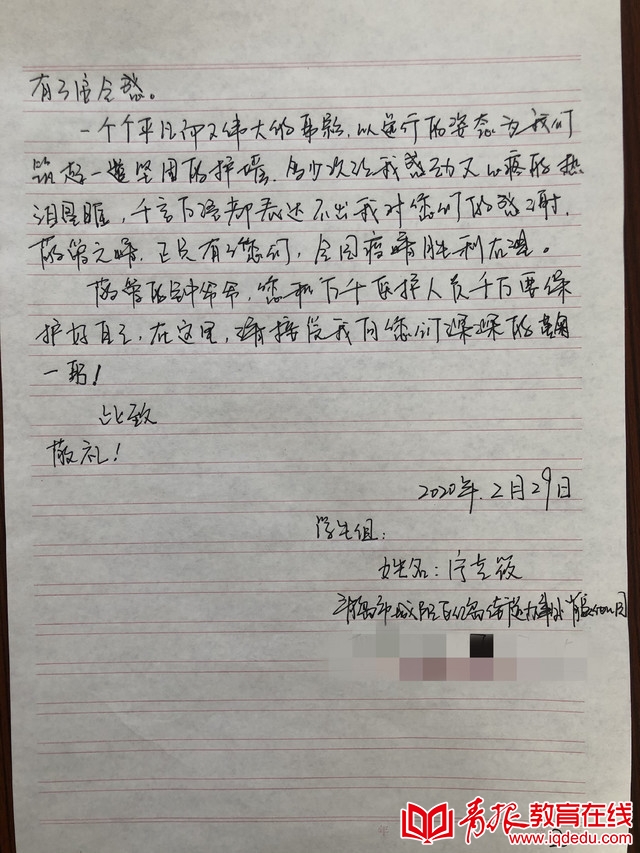 有了安全感。
一个个平凡而又伟大的身影,以逆行的姿态为我们
筑起一道坚固的护墙,多少次让我感动又心疼的热
泪盈眶,千言万语都表达不出我对您们的感谢,
敬爱的,正是有了您们,全国疫情胜利在望。
敬爱的钟爷爷,您和万千医护人员千万要保
护好自己,在这里,请接受我向您们深深的鞠
一躬!
此致
敬礼!
2020年.2月29日
学生组:
姓名:
青岛市城阳区
青报教育在线
www.iqdedu.com